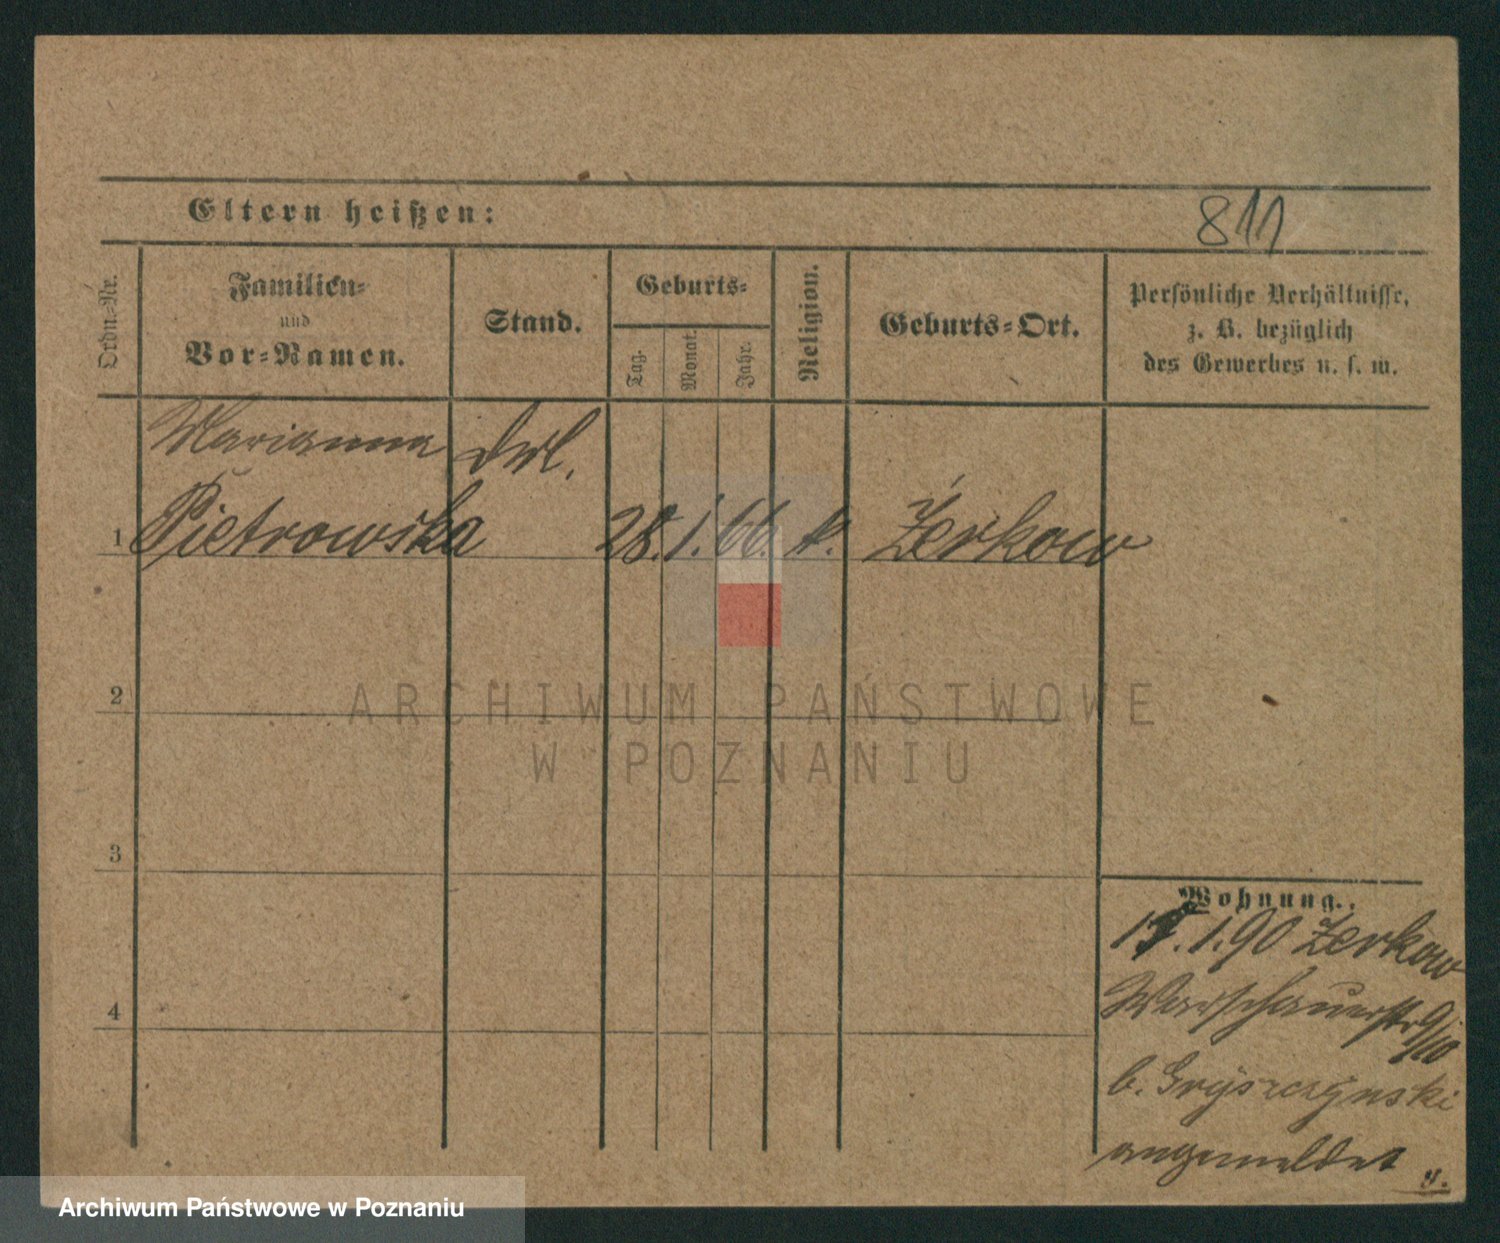 Eltern heißen:
811
Ordn.-Nr.
Familien-
und
Vor-Namen.
Stand.
Geburts-
Tag.
Monat.
Jahr.
Religion.
Geburts-Ort.
Persönliche Verhältnisse,
z. B. bezüglich
des Gewerbes u. s. w.
Marianna
1 Pietrowska 28. 1. 66. k. Żerkow
2
ARCHIWUM PAŃSTWOWE
W POZNANIU
3
Wohnung.
1.90 Zerkow
4
Warschauerstr 9/10
b. Gryszczynski
angemeldet
Archiwum Państwowe w Poznaniu